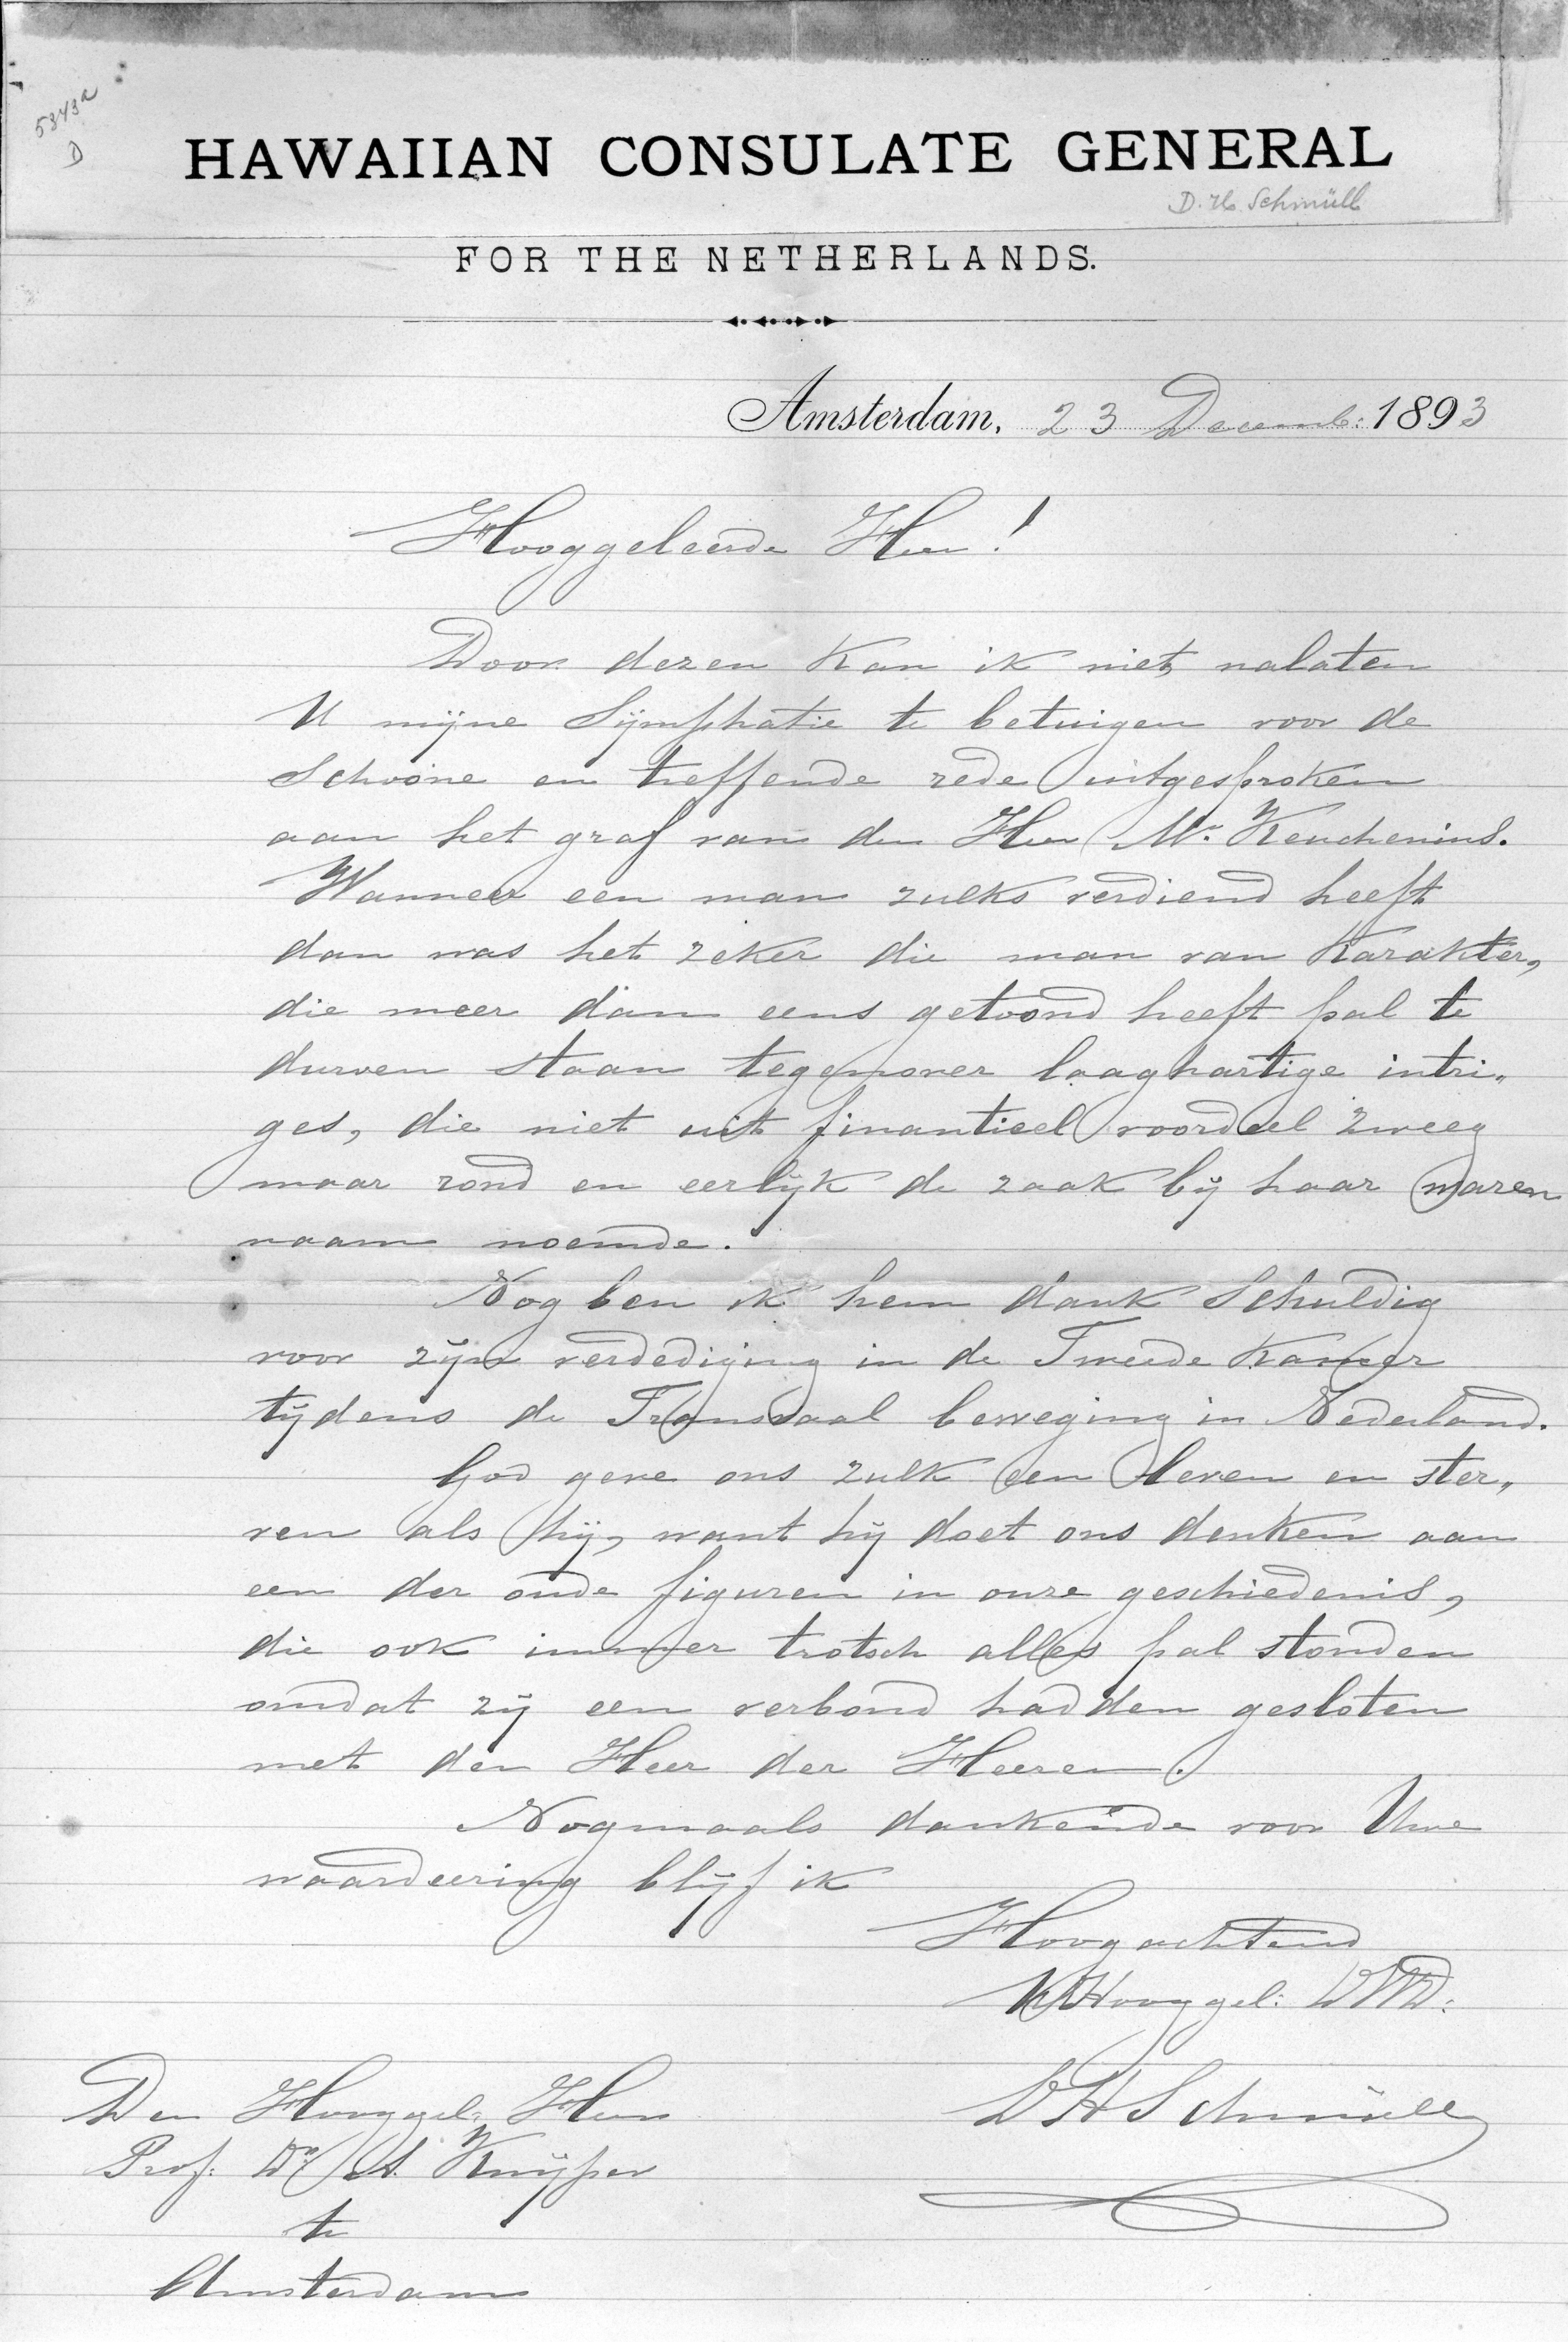 5343a
D
HAWAIIAN CONSULATE GENERAL
D. H. Schmüll
FOR THE NETHERLANDS.
Amsterdam, 23 Decemb: 1893
Hooggeleerde Heer!
Door dezen kan ik niet nalaten
U mijne Sijmphatie te betuigen voor de
Schoone en treffende rede uitgesproken
aan het graf van den Heer Mr. Keuchenius.
Wanneer een man zulks verdiend heeft
dan was het zeker die man van Karakter,
die meer dan eens getoond heeft pal te
durven staan tegenover laaghartige intri„
ges, die niet uit finantieel voordeel zweeg
maar rond en eerlijk de zaak bij haar waren
naam noemde.
Nog ben ik hem dank Schuldig
voor zijn verdediging in de Tweede Kamer
tijdens de Transvaal beweging in Nederland.
God geve ons zulk een leven en ster„
ven als hij, want hij doet ons denken aan
een der oude figuren in onze geschiedenis,
die ook immer trotsch alles pal stonden
omdat zij een verbond hadden gesloten
met den Heer der Heeren.
Nogmaals dankende voor Uwe
waardeering blijf ik
Hoogachtend
UHooggel: DWD:
DHSchmüll
Den Hooggel: Heer
Prof: Dr. A. Kuijper
te
Amsterdam